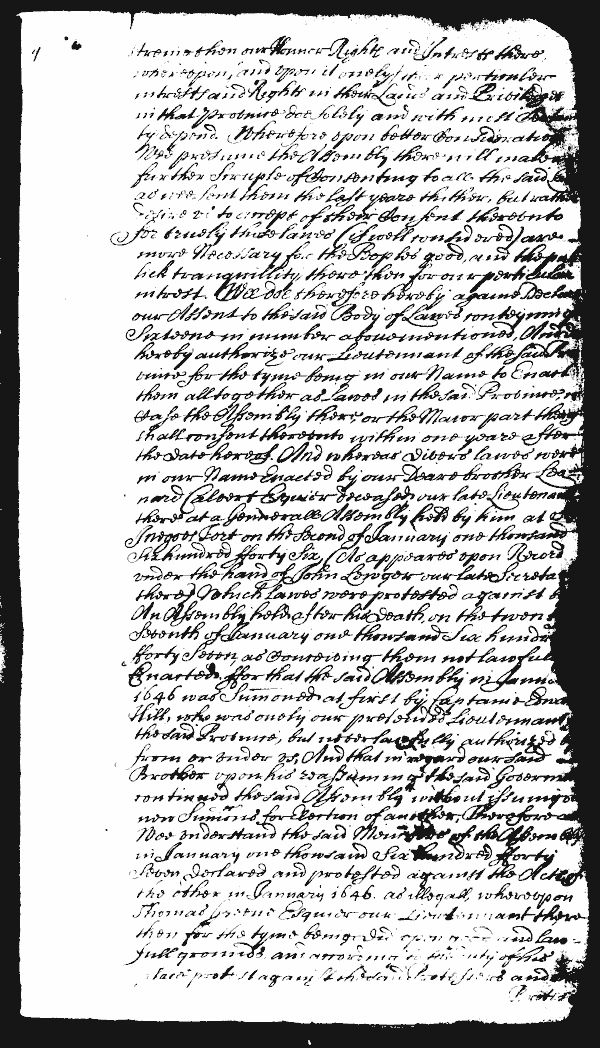 strengthen our Honnor Rights and Intrests there,
whereupon, and upon it onely, our perticuler
intrests and Rights in their Lawes and Priviledges
in that Province doe solely and with most
ty depend. Wherefore upon better Consideration
Wee presume the Assembly there will make
further Scruple of Consenting to all the said
as wee sent them the last yeare thither, but rather
desire us to accept of their Consent thereunto
for truely those lawes (if well considered) are
more Necessary for the Peoples good, and the pub
lick tranquillity there then for our perticuler
intrest. Wee doe therefore hereby againe Declare
our Assent to the said Body of Lawes conteyning
Sixteene in number abovementioned, And
hereby authorize our Lieutennant of the said Pro
vince for the tyme being in our Name to Enact
them alltogether as Lawes in the said Province in
Case the Assembly there, or the Maior part thereof
shall consent thereunto within one yeare after
the date hereof. And whereas divers lawes were
in our Name Enacted by our Deare brother Leo
nard Calvert Esquier deceased, our late Lieutenant
there at a Generall Assembly held by him at St
Inegoes Fort on the Second of January one thousand
Six hundred fforty Six, (As appeares upon Record
under the hand of John Lewger our late Secretary
there) Which lawes were protested against by
An Assembly held after his death, on the twenty
Seventh of January one thousand Six hundred
fforty Seven, as conceiving them not lawfully
Enacted, ffor that the said Assembly in January
1646 was Summoned at first by Captaine Edward
Hill, who was onely our pretended Lieutennant of
the said Province, but never lawfully authorized
from or under us, And that in regard our said
Brother upon his reassuming the said Governmt
continued the said Assembly without issuing
new Sumons for Election of another, Therefore as
Wee understand the said Members of the Assembly
in January one thousand Six hundred fforty
Seven declared and protested against the Acts of
the other in January 1646. as illegall, whereupon
Thomas Greene Esquier our Lieutennant there
then for the tyme being did upon good and law-
full grounds, and according to the duty of his
place protest against the said Protesters and